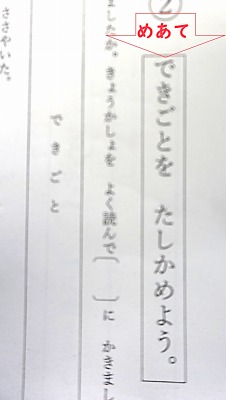 ②
めあて
できごとを　たしかめよう。
ましたか。きょうかしょを　よく読んで〔　〕に　かきまし
できごと
ささやいた。